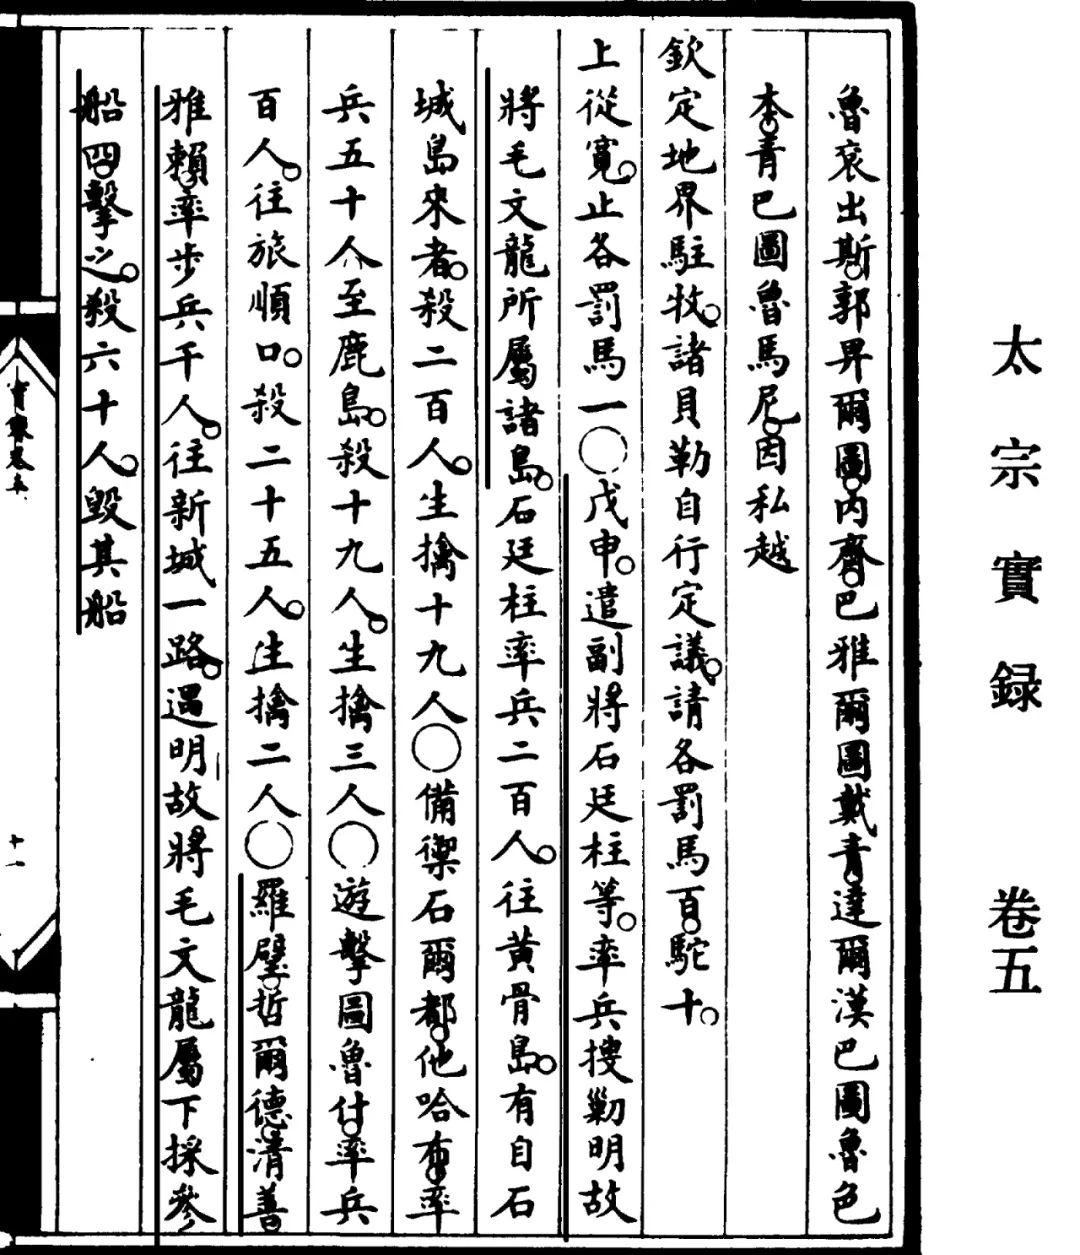 太宗實録 卷五
魯袞出斯。郭畀爾圖。內齊。巴雅爾圖戴青。達爾漢巴圖魯色
本。青巴圖魯馬尼。因私越
欽定地界駐牧。諸貝勒自行定議。請各罰馬百。駝十。
上從寬。止各罰馬一○戊申。遣副將石廷柱等。率兵搜勦明故
將毛文龍所屬諸島。石廷柱率兵二百人。往黃骨島。有自石
城島來者。殺二百人。生擒十九人○備禦石爾都。他哈布。率
兵五十人至鹿島。殺十九人。生擒三人○遊擊圖魯什。率兵
百人。往旅順口。殺二十五人。生擒二人○羅璧。哲爾德。清善。
雅賴。率步兵千人。往新城一路。遇明故將毛文龍屬下採參
船四。擊之。殺六十人。毀其船
實錄卷五
十一